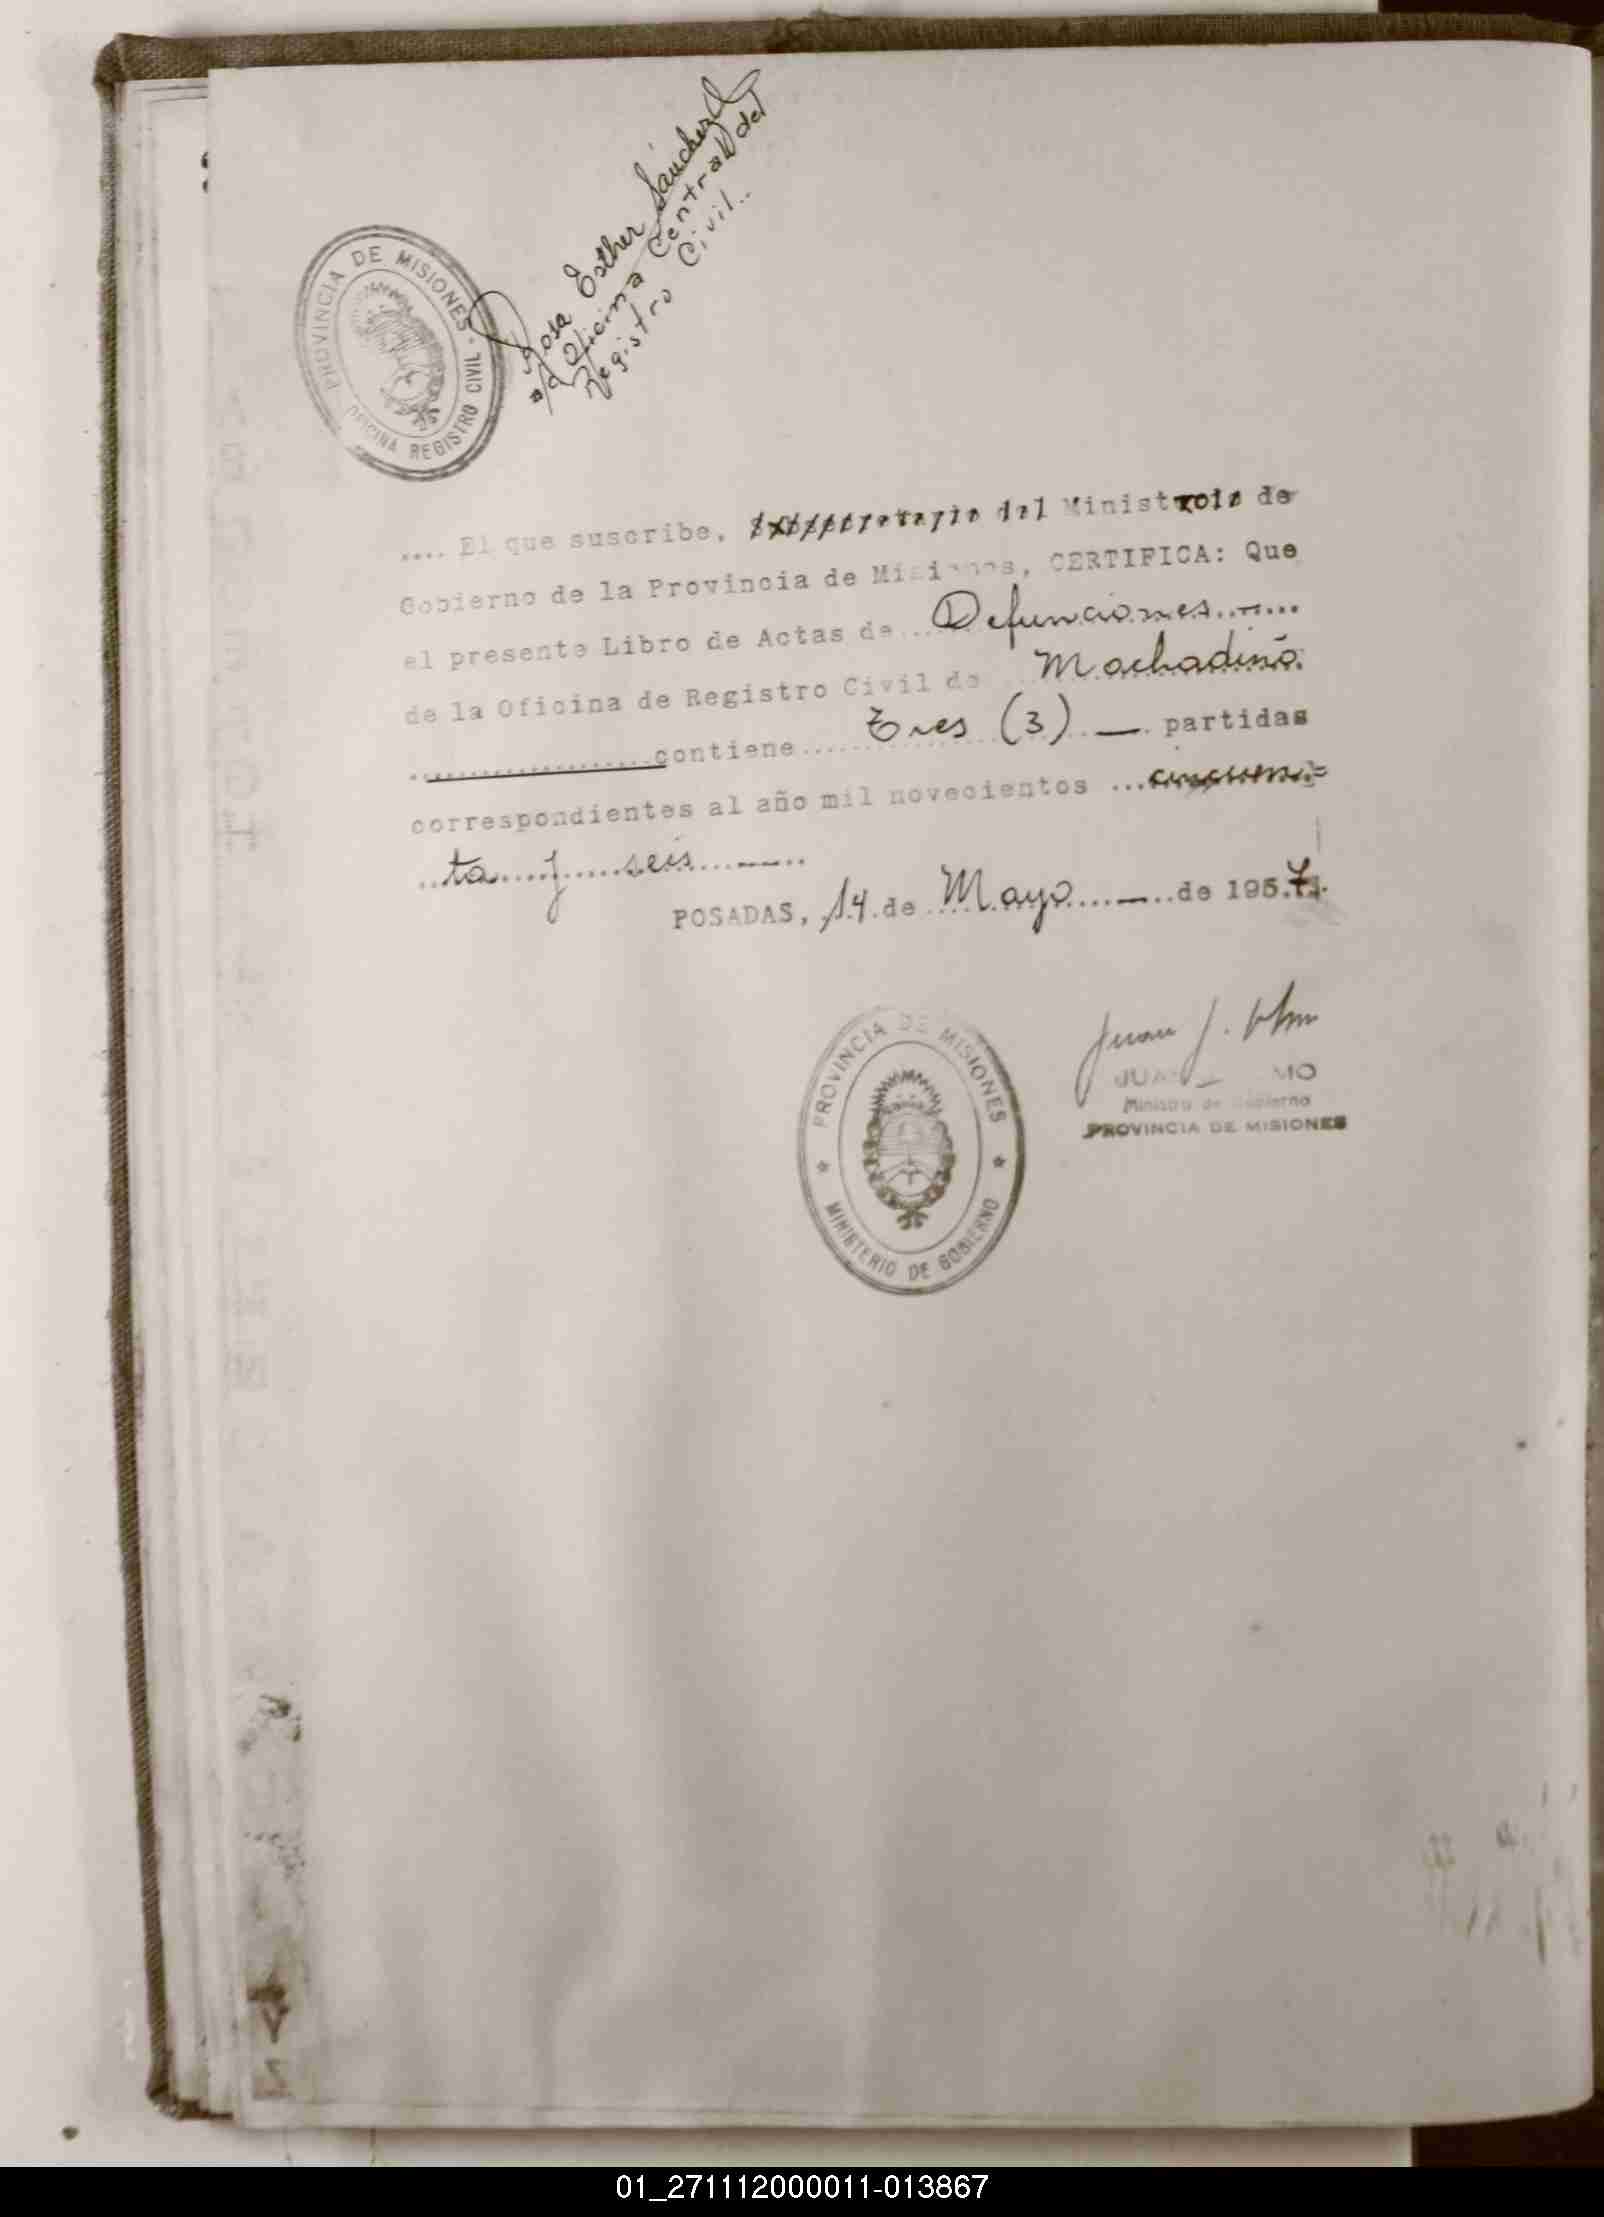 Rosa Esther Sánchez
a/c Oficina Central del
Registro Civil..
PROVINCIA DE MISIONES - OFICINA REGISTRO CIVIL
.... El que suscribe, Ministro de
Gobierno de la Provincia de Misiones, CERTIFICA: Que
el presente Libro de Actas de ... Defunciones.......
de la Oficina de Registro Civil de Machadiño.
....................contiene..... Tres (3) — partidas
correspondientes al año mil novecientos ...cincuen=
..ta....y.....seis.........
POSADAS, 14 de Mayo de 1957.
PROVINCIA DE MISIONES
MINISTERIO DE GOBIERNO
Juan J.
Ministro de Gobierno
PROVINCIA DE MISIONES
01_271112000011-013867